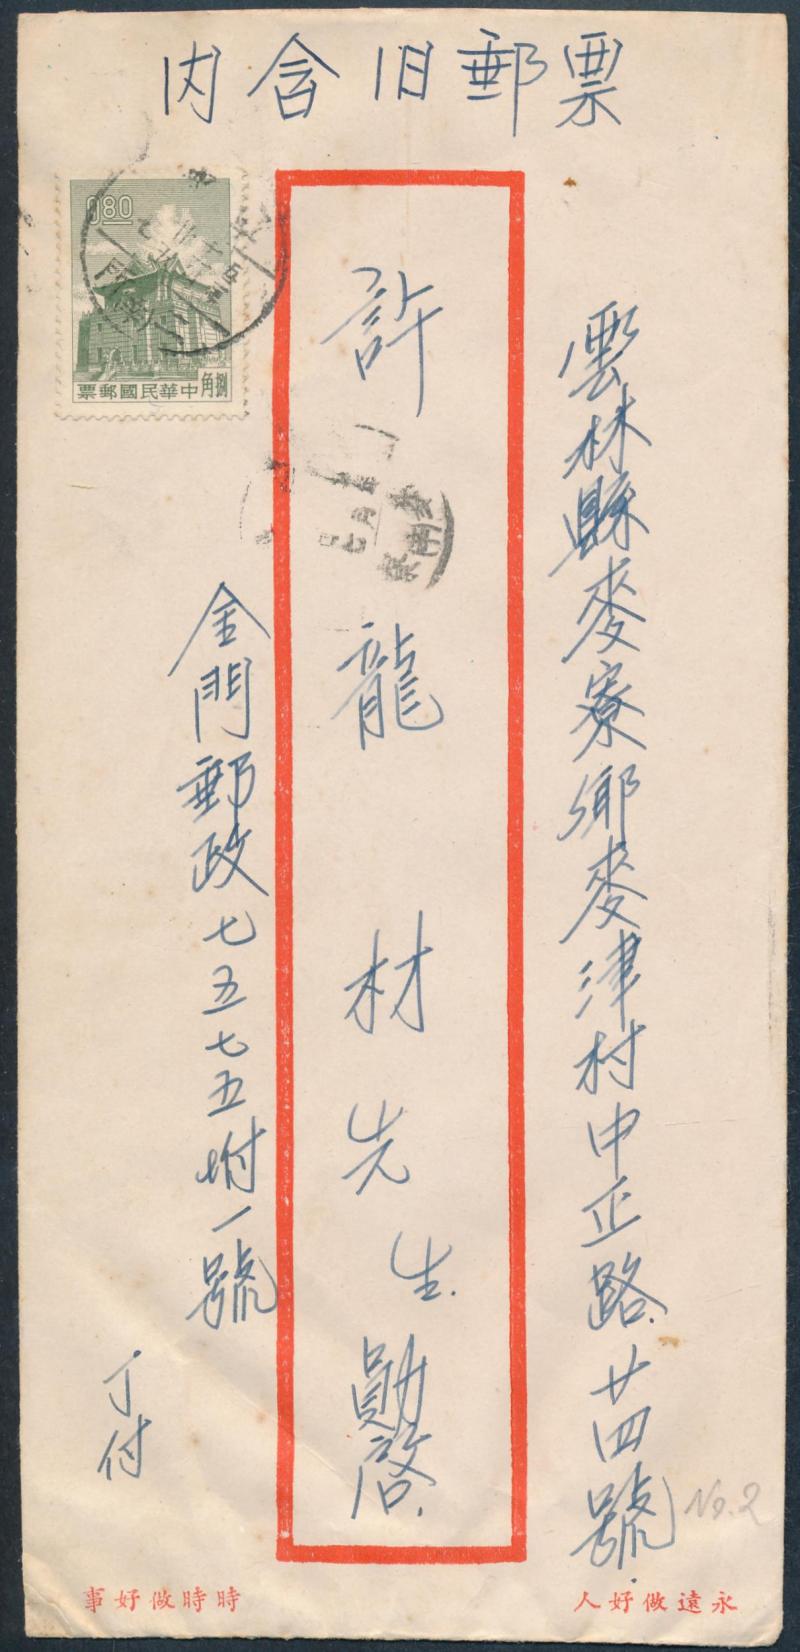 内含旧郵票
雲林縣麥寮鄉麥津村中正路廿四號
許龍材先生勛啓
金門郵政七五七五附一號
丁付
0.80
中華民國郵票
捌角
No.2
永遠做好人
時時做好事